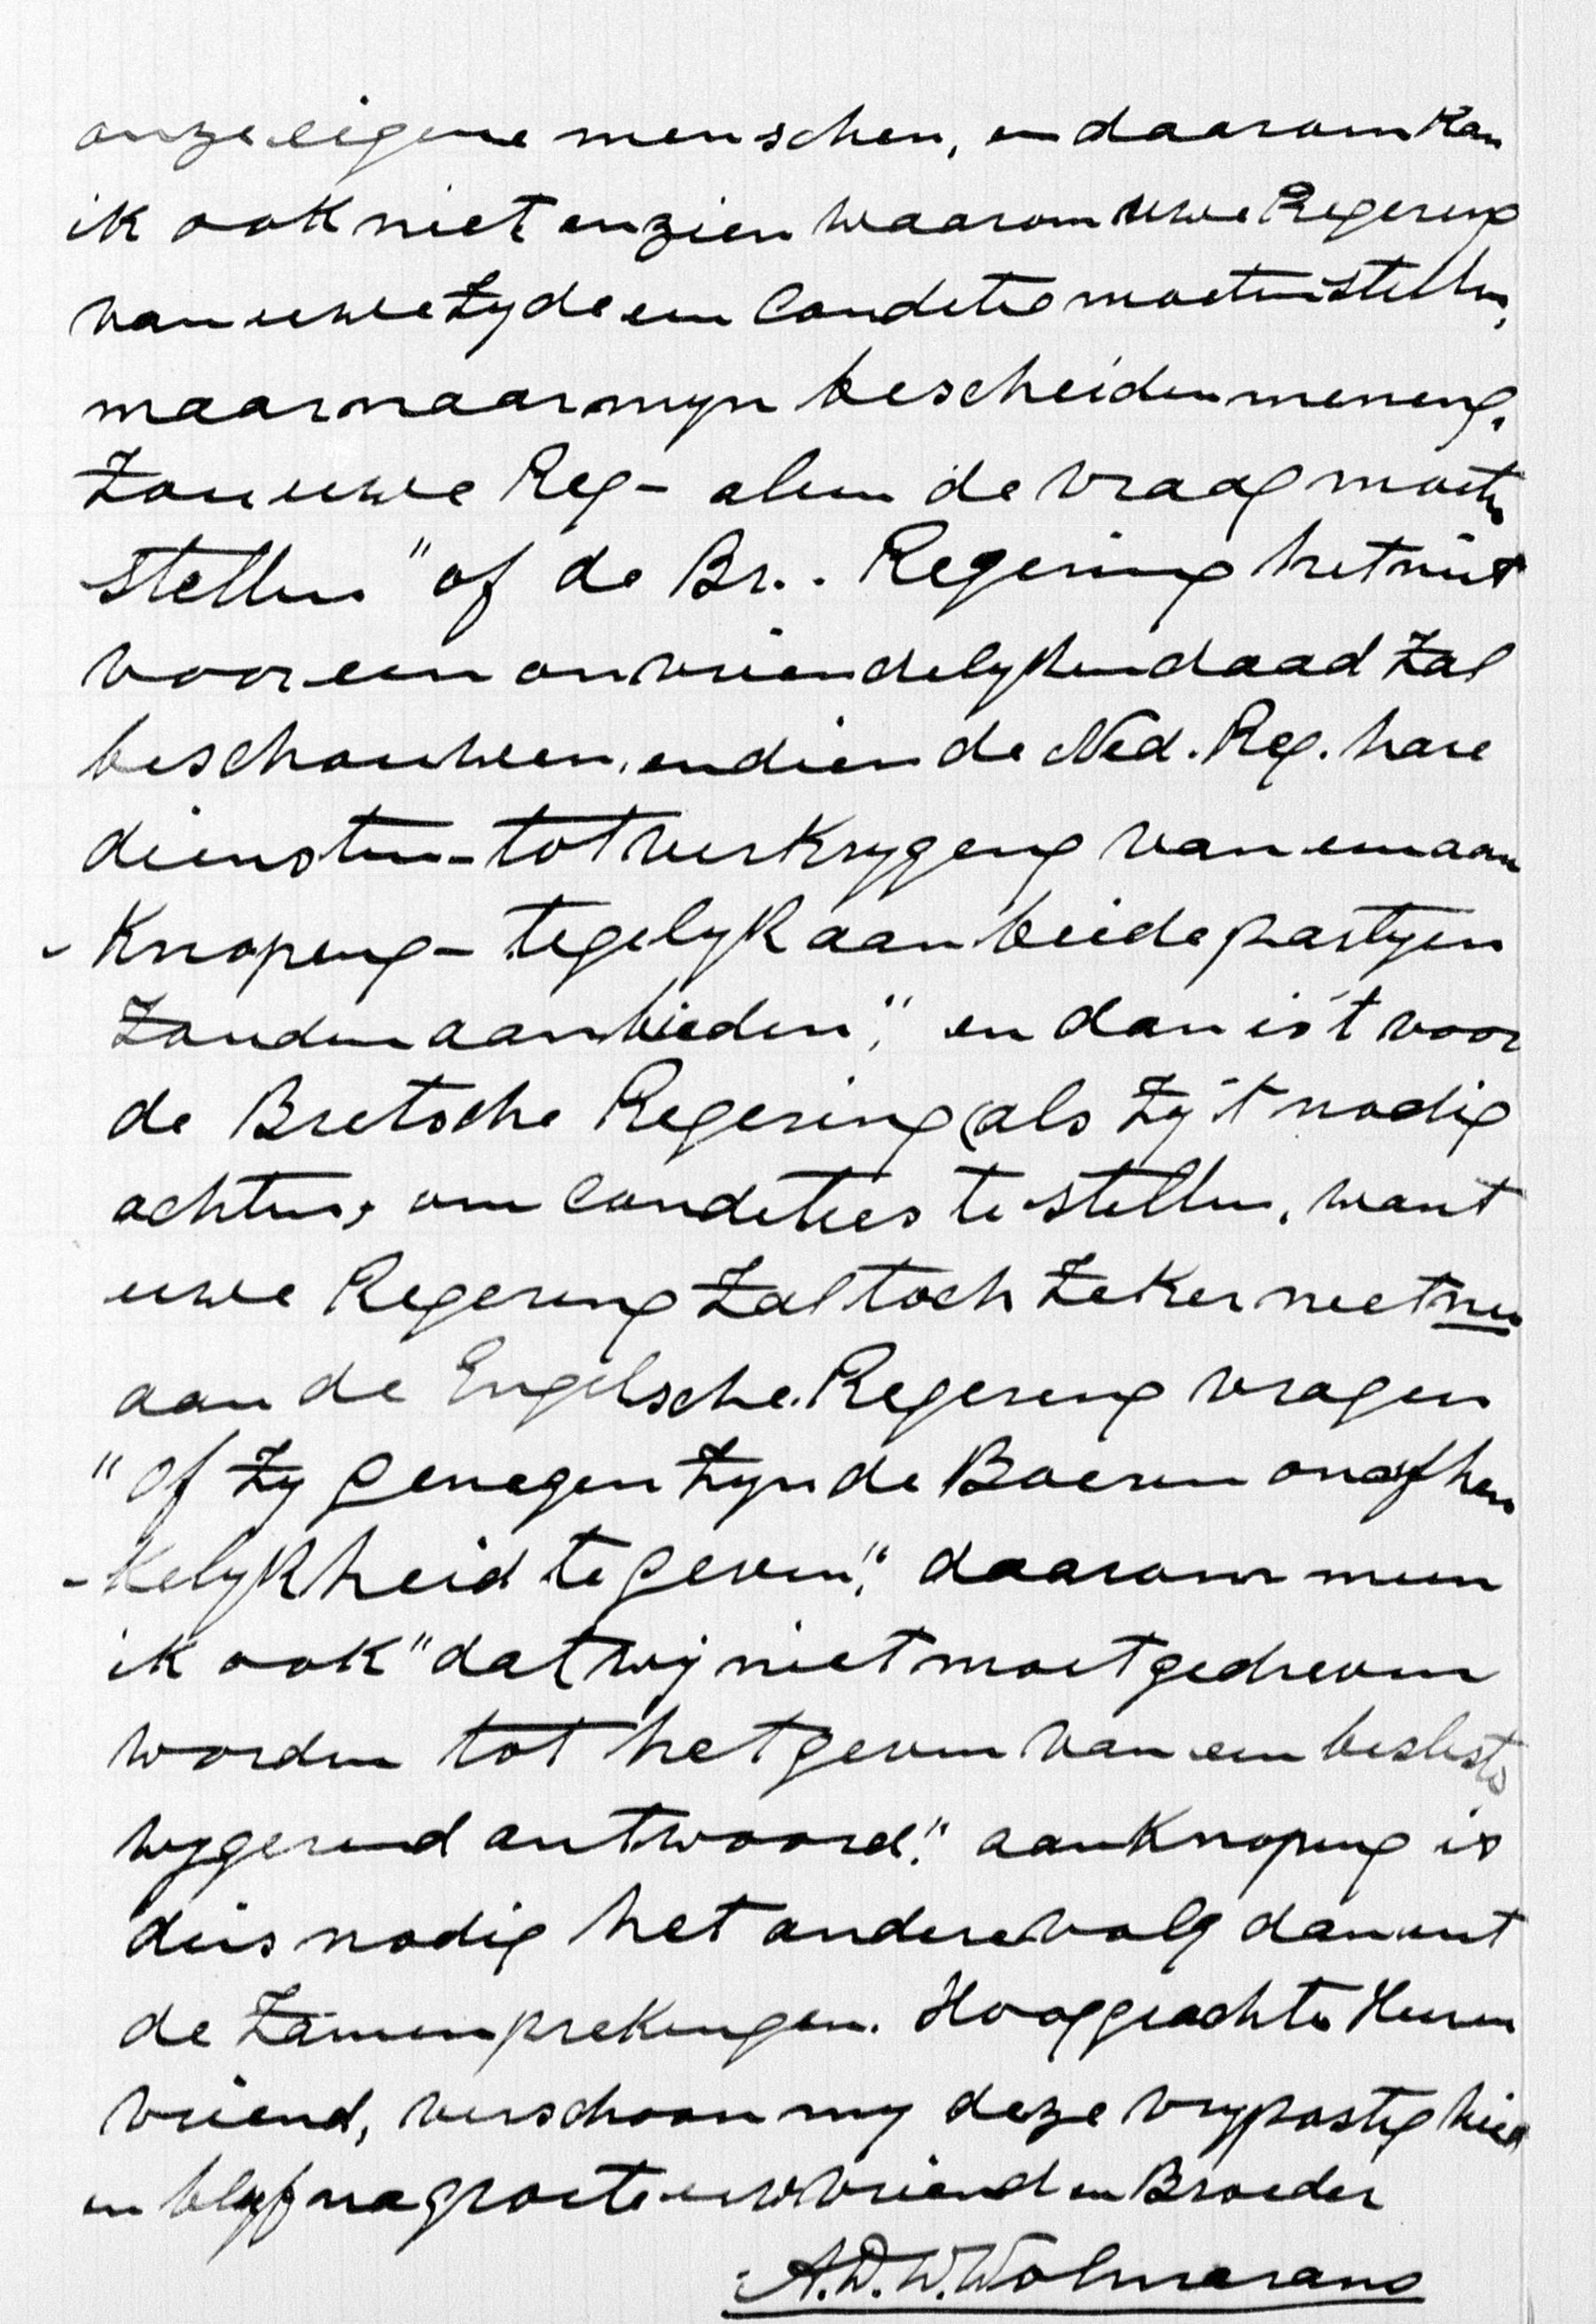 onze eigene menschen, en daarom kan
ik ook niet enzien waarom uwe Regereng
van uwe zyde een Condetie moeten stellen,
maar naar myn bescheiden meneng,
zou uwe Reg- aleen de vraag moeten
stellen "of de Br.. Regering het niet
voor een onvriendelyken daad zal
beschouween, endien de Ned. Reg. hare
diensten - tot verkrygeng van een aan
- knopeng - tegelyk aan beide partyen
zouden aanbieden", en dan is 't voor
de Bretsche Regering (als zy 't nodig
achten, om Condeties te stellen, want
uwe Regereng zal toch zeker neet nu
aan de Engelsche Regereng vragen
"of zy genegen zyn de Boeren onafhen
- kelykheid te geven", daarom meen
ik ook "dat wij niet moet gedreven
worden tot het geven van een besleste
wygerend antwoord." aanknopeng is
dus nodig het andere volg dan uit
de zamenprekengen. Hooggeachte Heer en
vriend, verschoon my deze vrypostigheid
en blyf na groete uw vriend en Broeder
A.D.W. Wolmarans